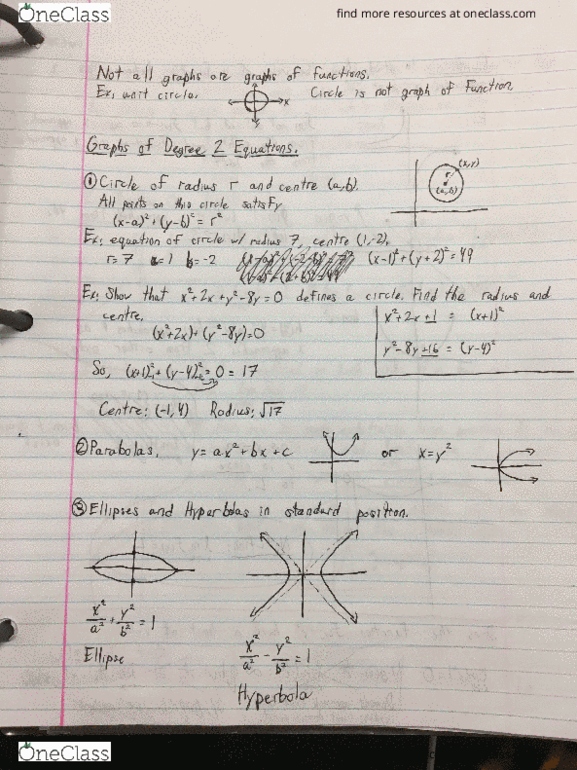 OneClass
find more resources at oneclass.com
Not all graphs are graphs of functions.
Ex, unit circle. x y Circle is not graph of Function
Graphs of Degree 2 Equations.
① Circle of radius r and centre (a,b).
(x,y) r (a,b)
All points on this circle satisfy
(x-a)²+(y-b)²=r²
Ex, equation of circle w/ radius 7, centre (1,-2).
r=7 a=1 b=-2 (x-1)²+(y+2)²=49
Ex, Show that x²+2x+y²-8y=0 defines a circle. Find the radius and
centre.
x²+2x+1 = (x+1)²
(x²+2x)+(y²-8y)=0
y²-8y+16 = (y-4)²
So, (x+1)² + (y-4)² = 0 = 17
Centre: (-1,4) Radius: √17
② Parabolas, y=ax²+bx+c or x=y²
③ Ellipses and Hyperbolas in standard position.
x²/a² + y²/b² = 1
Ellipse
x²/a² - y²/b² = 1
Hyperbola
OneClass